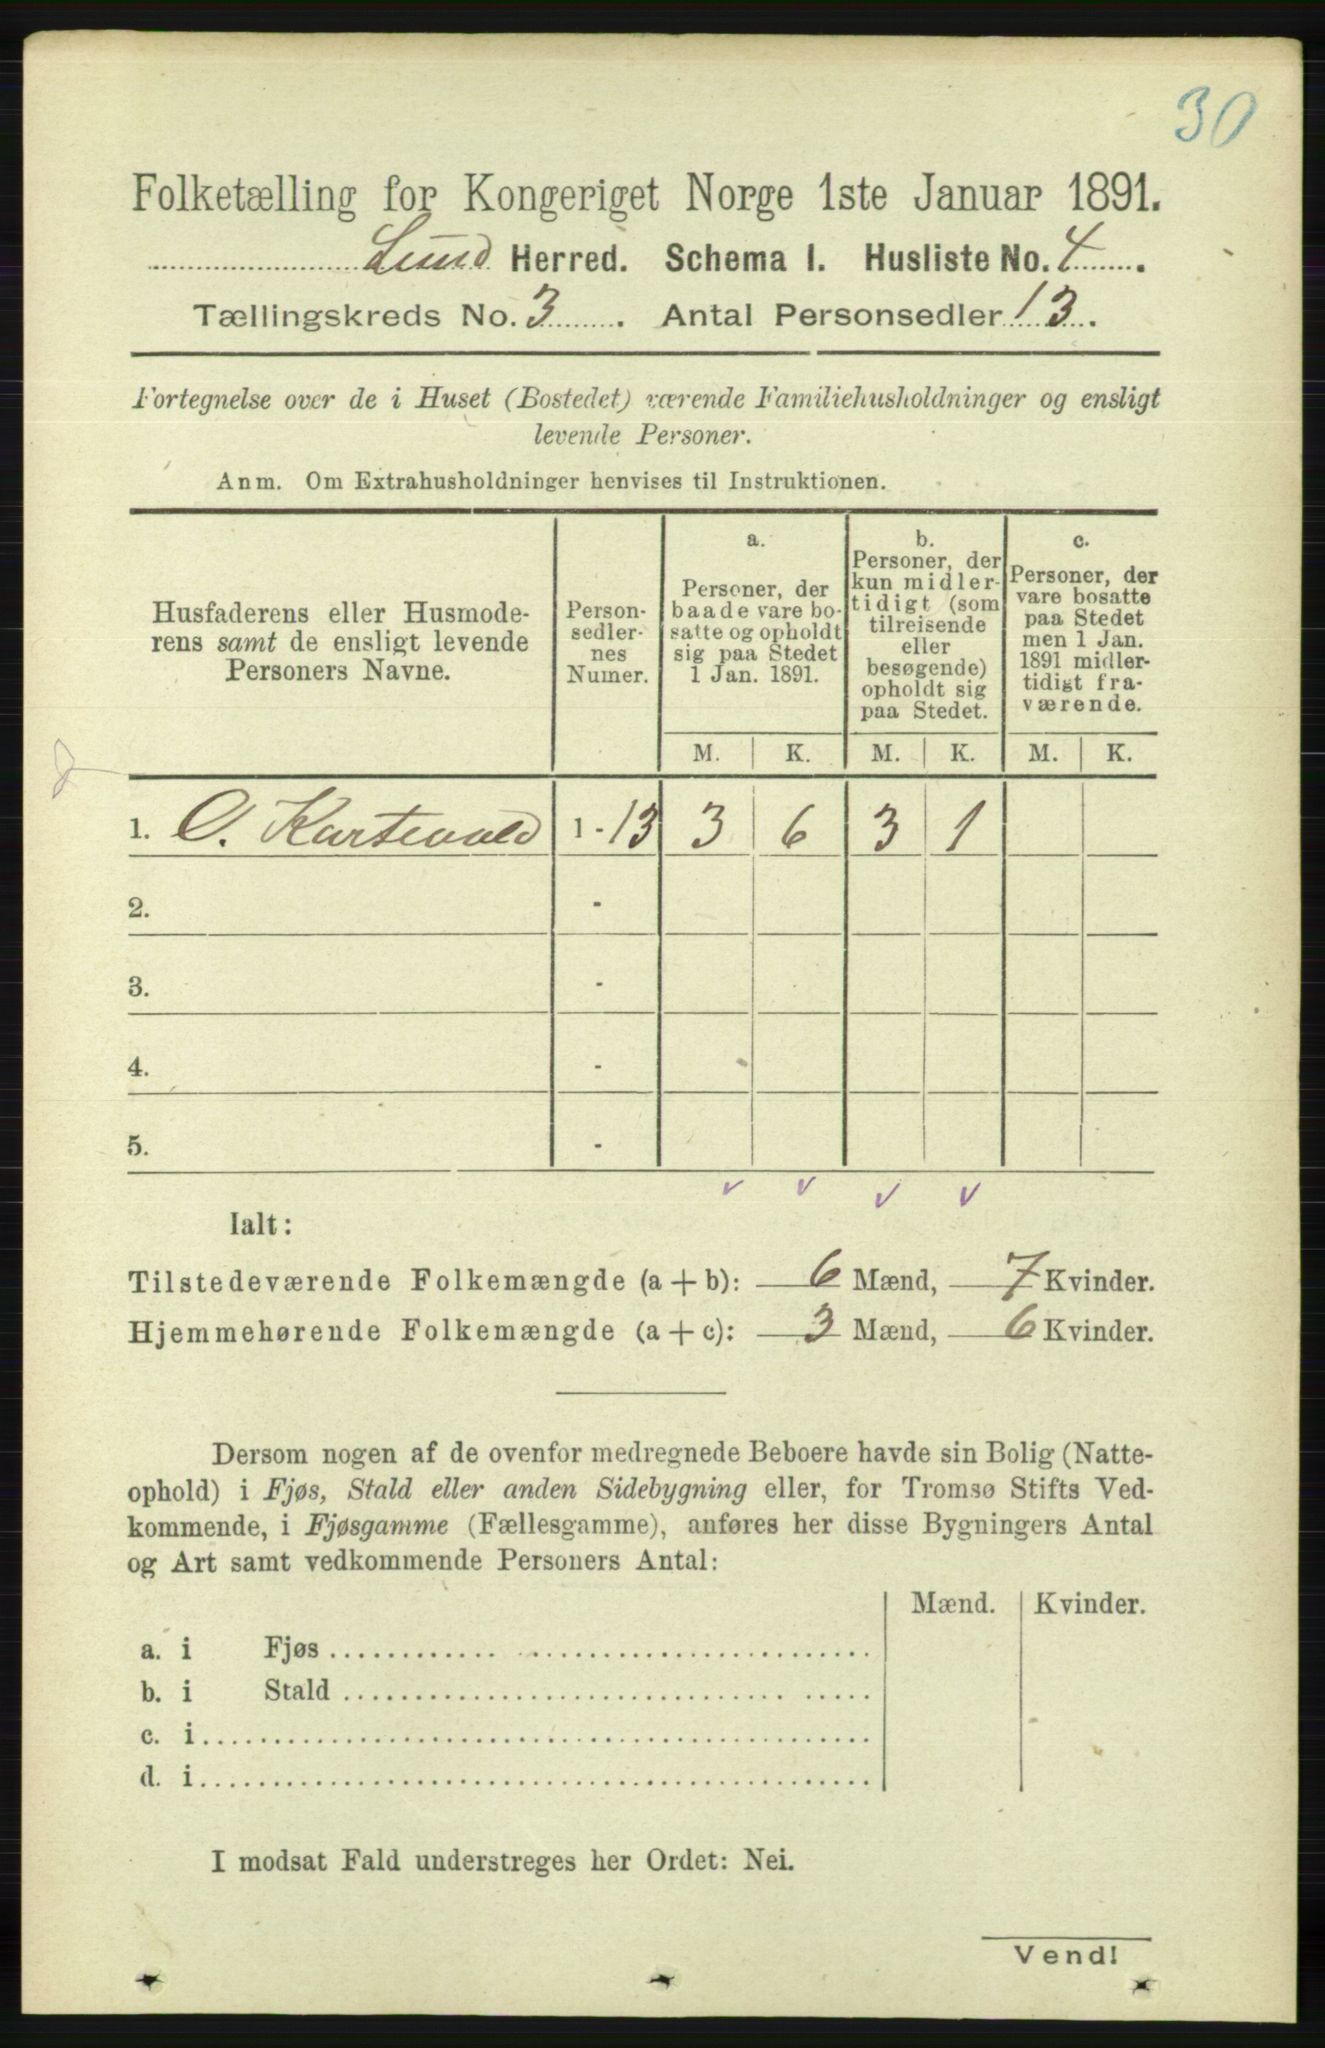 30
Folketælling for Kongeriget Norge 1ste Januar 1891.
Lund Herred. Schema I. Husliste No. 4.
Tællingskreds No. 3. Antal Personsedler 13.
Fortegnelse over de i Huset (Bostedet) værende Familiehusholdninger og ensligt
levende Personer.
Anm. Om Extrahusholdninger henvises til Instruktionen.
Husfaderens eller Husmode-
rens samt de ensligt levende
Personers Navne.
Person-
sedler-
nes
Numer.
a.
Personer, der
baade vare bo-
satte og opholdt
sig paa Stedet
1 Jan. 1891.
b.
Personer, der
kun midler-
tidigt (som
tilreisende
eller
besøgende)
opholdt sig
paa Stedet.
c.
Personer, der
vare bosatte
paa Stedet
men 1 Jan.
1891 midler-
tidigt fra-
værende.
M. K. M. K. M. K.
1. O. 1-13 3 6 3 1
2. -
3. -
4. -
5. -
Ialt:
Tilstedeværende Folkemængde (a + b): 6 Mænd, 7 Kvinder.
Hjemmehørende Folkemængde (a + c): 3 Mænd, 6 Kvinder.
Dersom nogen af de ovenfor medregnede Beboere havde sin Bolig (Natte-
ophold) i Fjøs, Stald eller anden Sidebygning eller, for Tromsø Stifts Ved-
kommende, i Fjøsgamme (Fællesgamme), anføres her disse Bygningers Antal
og Art samt vedkommende Personers Antal:
Mænd. Kvinder.
a. i Fjøs
b. i Stald
c. i
d. i
I modsat Fald understreges her Ordet: Nei.
Vend!